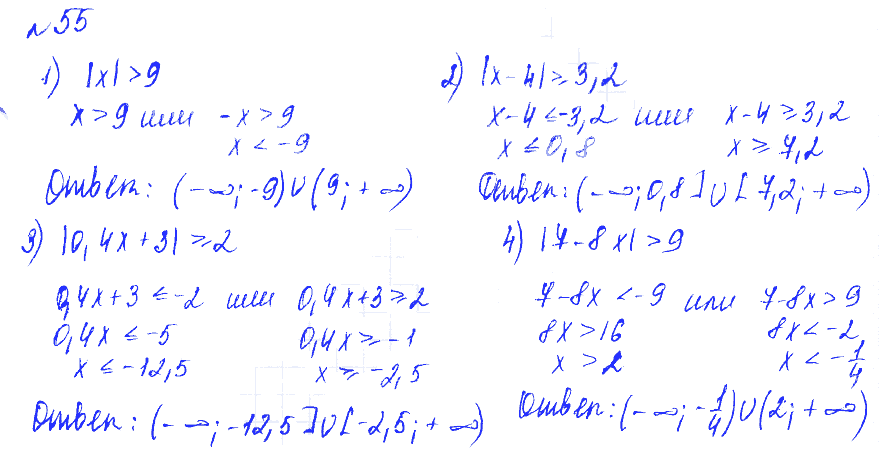 №55
1) |x| > 9
x > 9 или -x > 9
x < -9
Ответ: (-∞; -9) ∪ (9; +∞)
2) |x-4| ≥ 3,2
x-4 ≤ -3,2 или x-4 ≥ 3,2
x ≤ 0,8 x ≥ 7,2
Ответ: (-∞; 0,8] ∪ [7,2; +∞)
3) |0,4x+3| ≥ 2
0,4x+3 ≤ -2 или 0,4x+3 ≥ 2
0,4x ≤ -5 0,4x ≥ -1
x ≤ -12,5 x ≥ -2,5
Ответ: (-∞; -12,5] ∪ [-2,5; +∞)
4) |7-8x| > 9
7-8x < -9 или 7-8x > 9
8x > 16 8x < -2
x > 2 x < -1/4
Ответ: (-∞; -1/4) ∪ (2; +∞)